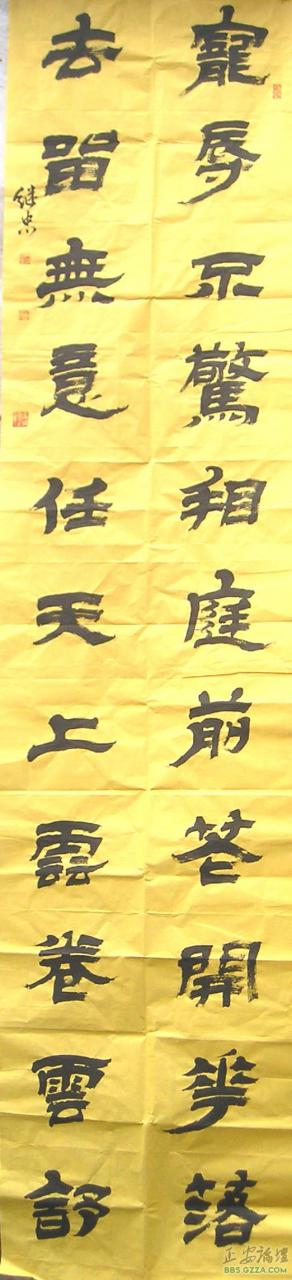 寵辱不驚相庭前花開華落
去留無意任天上雲卷雲舒
继忠
正安论坛
BBS.GZZA.COM